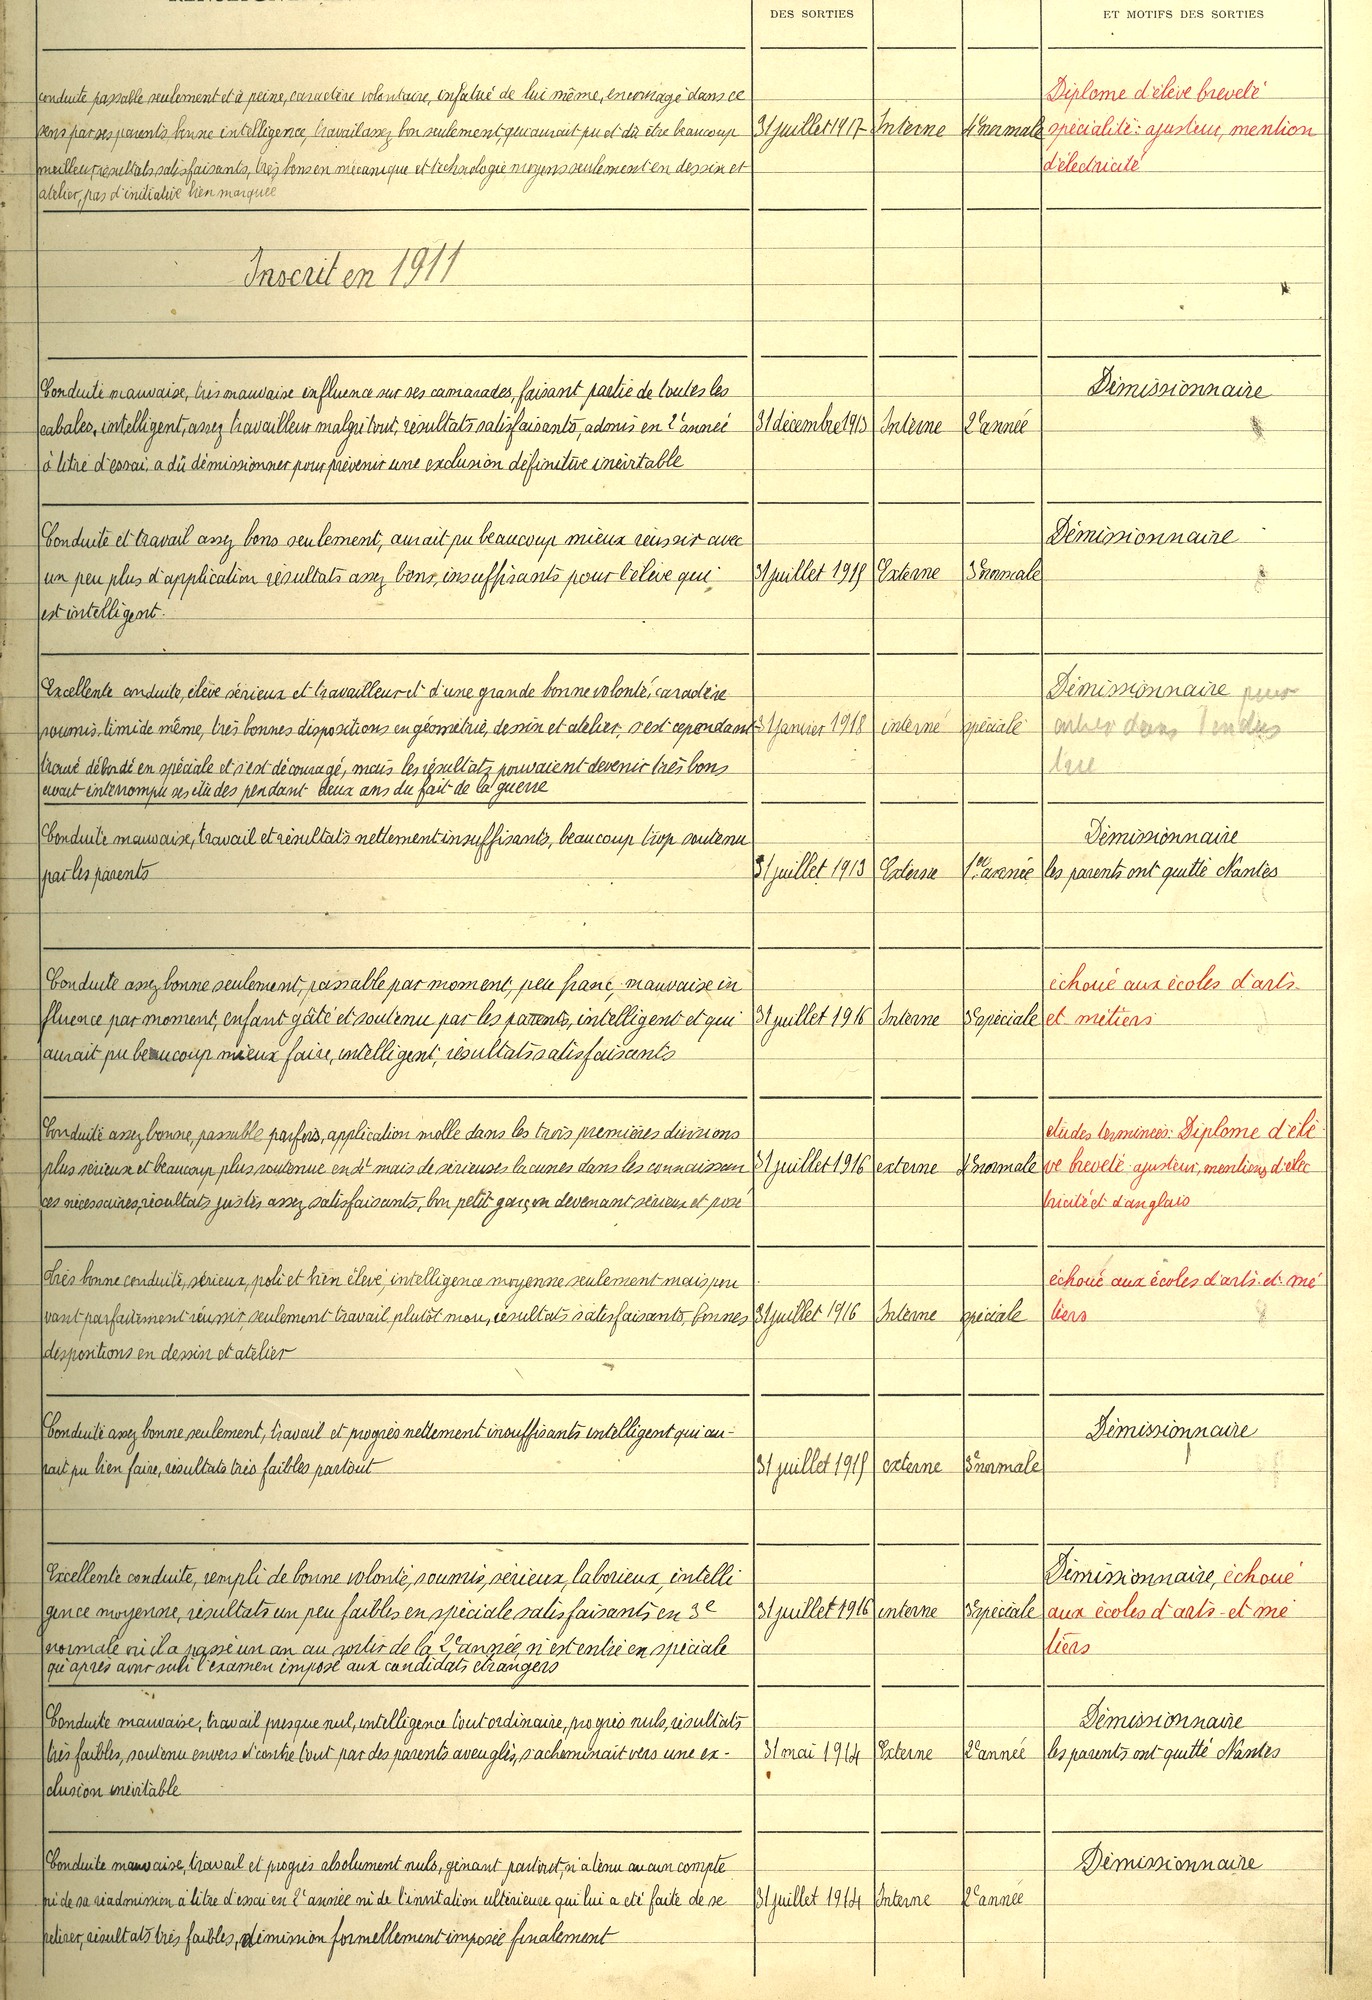 DES SORTIES
ET MOTIFS DES SORTIES
conduite passable seulement et à peine, caractère volontaire, infatué de lui même, encouragé dans ce
sens par ses parents, bonne intelligence, travail assez bon seulement, qui aurait pu et dû être beaucoup
meilleur, résultats satisfaisants, très bons en mécanique et technologie moyens seulement en dessin et
atelier, pas d'initiative bien marquée
31 juillet 1917
Interne
4e normale
Diplome d'élève breveté
spécialité: ajusteur, mention
d'électricité
Inscrit en 1911
Conduite mauvaise, très mauvaise influence sur ses camarades, faisant partie de toutes les
cabales, intelligent, assez travailleur malgré tout, résultats satisfaisants, admis en 2e année
à titre d'essai, a dû démissionner pour prévenir une exclusion définitive inévitable
31 décembre 1913
Interne
2e année
Démissionnaire
Conduite et travail assez bons seulement, aurait pu beaucoup mieux réussir avec
un peu plus d'application résultats assez bons, insuffisants pour l'élève qui
est intelligent.
31 juillet 1915
Externe
3e normale
Démissionnaire
Excellente conduite, élève sérieux et travailleur et d'une grande bonne volonté, caractère
soumis, timide même, très bonnes dispositions en géométrie, dessin et atelier, s'est cependant
trouvé débordé en spéciale et s'est découragé, mais les résultats pouvaient devenir très bons
avait interrompu ses études pendant deux ans du fait de la guerre
31 janvier 1918
interne
spéciale
Démissionnaire pour
entrer dans l'indus
trie
Conduite mauvaise, travail et résultats nettement insuffisants, beaucoup trop soutenu
par les parents
31 juillet 1913
Externe
1re année
Démissionnaire
les parents ont quitté Nantes
Conduite assez bonne seulement, passable par moment, peu franc, mauvaise in
fluence par moment, enfant gâté et soutenu par les parents, intelligent et qui
aurait pu beaucoup mieux faire, intelligent, résultats satisfaisants
31 juillet 1916
Interne
3e spéciale
échoué aux écoles d'arts
et métiers
Conduite assez bonne, passable parfois, application molle dans les trois premières divisions
plus sérieux et beaucoup plus soutenue en 4e mais de sérieuses lacunes dans les connaissan
ces nécessaires, résultats justes assez satisfaisants, bon petit garçon devenant sérieux et posé
31 juillet 1916
externe
4e normale
études terminées: Diplome d'élè
ve breveté ajusteur, mentions d'élec
tricité et d'anglais
très bonne conduite, sérieux, poli et bien élevé, intelligence moyenne seulement mais pou
vant parfaitement réussir, seulement travail plutôt mou, résultats satisfaisants, bonnes
dispositions en dessin et atelier
31 juillet 1916
Interne
spéciale
échoué aux écoles d'arts et mé
tiers
Conduite assez bonne seulement, travail et progrès nettement insuffisants intelligent qui au-
rait pu bien faire, résultats très faibles partout
31 juillet 1915
externe
3e normale
Démissionnaire
Excellente conduite, rempli de bonne volonté, soumis, sérieux, laborieux, intelli
gence moyenne, résultats un peu faibles en spéciale satisfaisants en 3e
normale où il a passé un an au sortir de la 2e année n'est entré en spéciale
qu'après avoir subi l'examen imposé aux candidats étrangers
31 juillet 1916
interne
3e spéciale
Démissionnaire, échoué
aux écoles d'arts et mé
tiers
Conduite mauvaise, travail presque nul, intelligence tout ordinaire, progrès nuls, résultats
très faibles, soutenu envers et contre tout par des parents aveuglés, s'acheminait vers une ex-
clusion inévitable
31 mai 1914
Externe
2e année
Démissionnaire
les parents ont quitté Nantes
Conduite mauvaise, travail et progrès absolument nuls, gênant partout, n'a tenu aucun compte
ni de sa réadmission à titre d'essai en 2e année ni de l'invitation ultérieure qui lui a été faite de se
retirer, résultats très faibles, démission formellement imposée finalement
31 juillet 1914
Interne
2e année
Démissionnaire